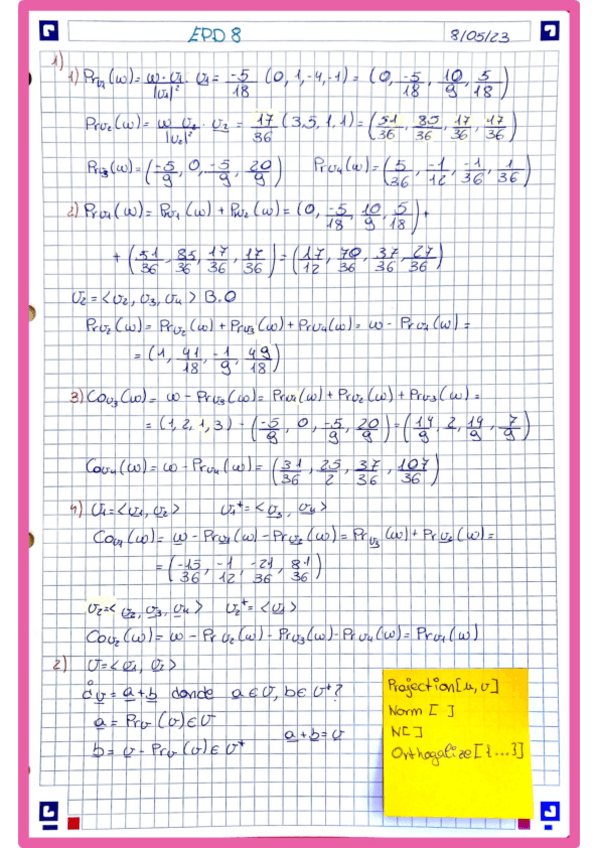 EPD 8 8/05/23
1)
1) Prv1(w) = w·v1/|v1|² · v1 = -5/18 (0, 1, -4, -1) = (0, -5/18, 10/9, 5/18)
Prv2(w) = w·v2/|v2|² · v2 = 17/36 (3,5,1,1) = (51/36, 85/36, 17/36, 17/36)
Prv3(w) = (-5/9, 0, -5/9, 20/9) Prv4(w) = (5/36, -1/12, -1/36, 1/36)
2) PrU1(w) = Prv1(w) + Prv2(w) = (0, -5/18, 10/9, 5/18) +
+ (51/36, 85/36, 17/36, 17/36) = (17/12, 70/36, 37/36, 27/36)
U2 = <v2, v3, v4> B.O
PrU2(w) = Prv2(w) + Prv3(w) + Prv4(w) = w - Prv1(w) =
= (1, 41/18, -1/9, 49/18)
3) Cov3(w) = w - Prv3(w) = Prv1(w) + Prv2(w) + Prv3(w) =
= (1, 2, 1, 3) - (-5/9, 0, -5/9, 20/9) = (14/9, 2, 14/9, 7/9)
Cov4(w) = w - Prv4(w) = (31/36, 25/2, 37/36, 107/36)
4) U1 = <v1, v2> U1⁺ = <v3, v4>
CoU1(w) = w - Prv1(w) - Prv2(w) = Prv3(w) + Prv4(w) =
= (-15/36, -1/12, -21/36, 81/36)
U2 = <v2, v3, v4> U2⁺ = <v1>
CoU2(w) = w - Prv2(w) - Prv3(w) - Prv4(w) = Prv1(w)
2) U = <v1, v2>
¿v = a + b donde a ∈ U, b ∈ U⁺?
a = PrU(v) ∈ U
a + b = v
b = v - PrU(v) ∈ U⁺
Projection[u, v]
Norm [ ]
N[ ]
Orthogalize[{...}]